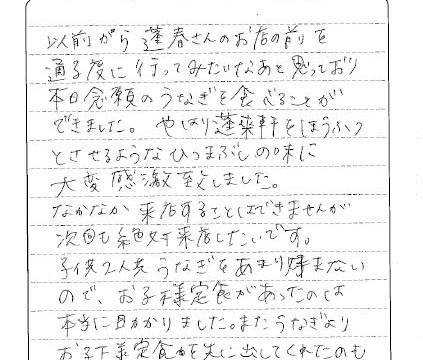 以前から蓬春さんのお店の前を
通る度に行ってみたいなあと思っており
本日念願のうなぎを食べることが
できました。やはり蓬莱軒をほうふつ
とさせるようなひつまぶしの味に
大変感激致しました。
なかなか来店することはできませんが
次回も絶対来店したいです。
子供2人共うなぎをあまり好まない
ので、お子様定食があったのは
本当に助かりました。またうなぎより
お子様定食を先に出してくれたのも